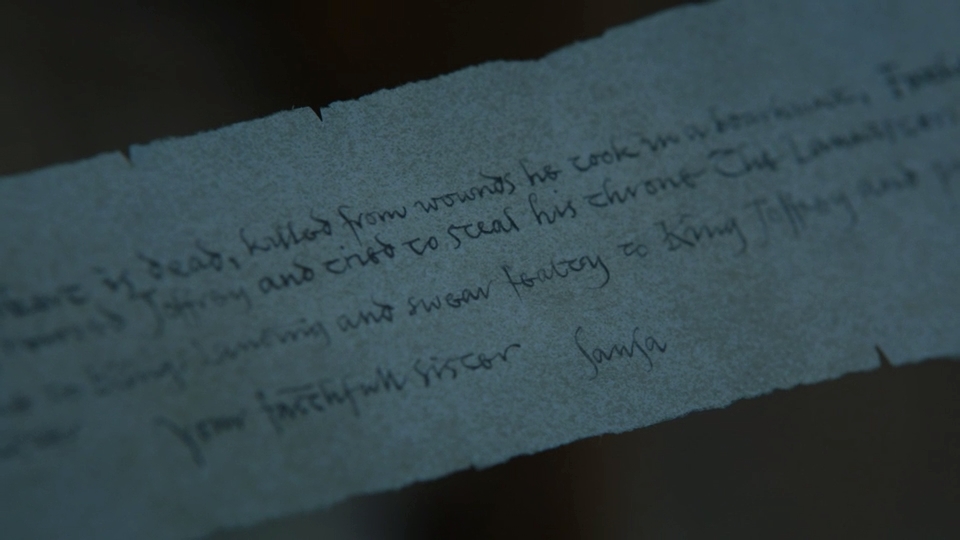 is dead, killed from wounds he took in a boarhunt, Father
Joffrey and tried to steal his throne The Lannisters
to Kings Landing and swear fealty to King Joffrey and
Your faithfull sister Sansa